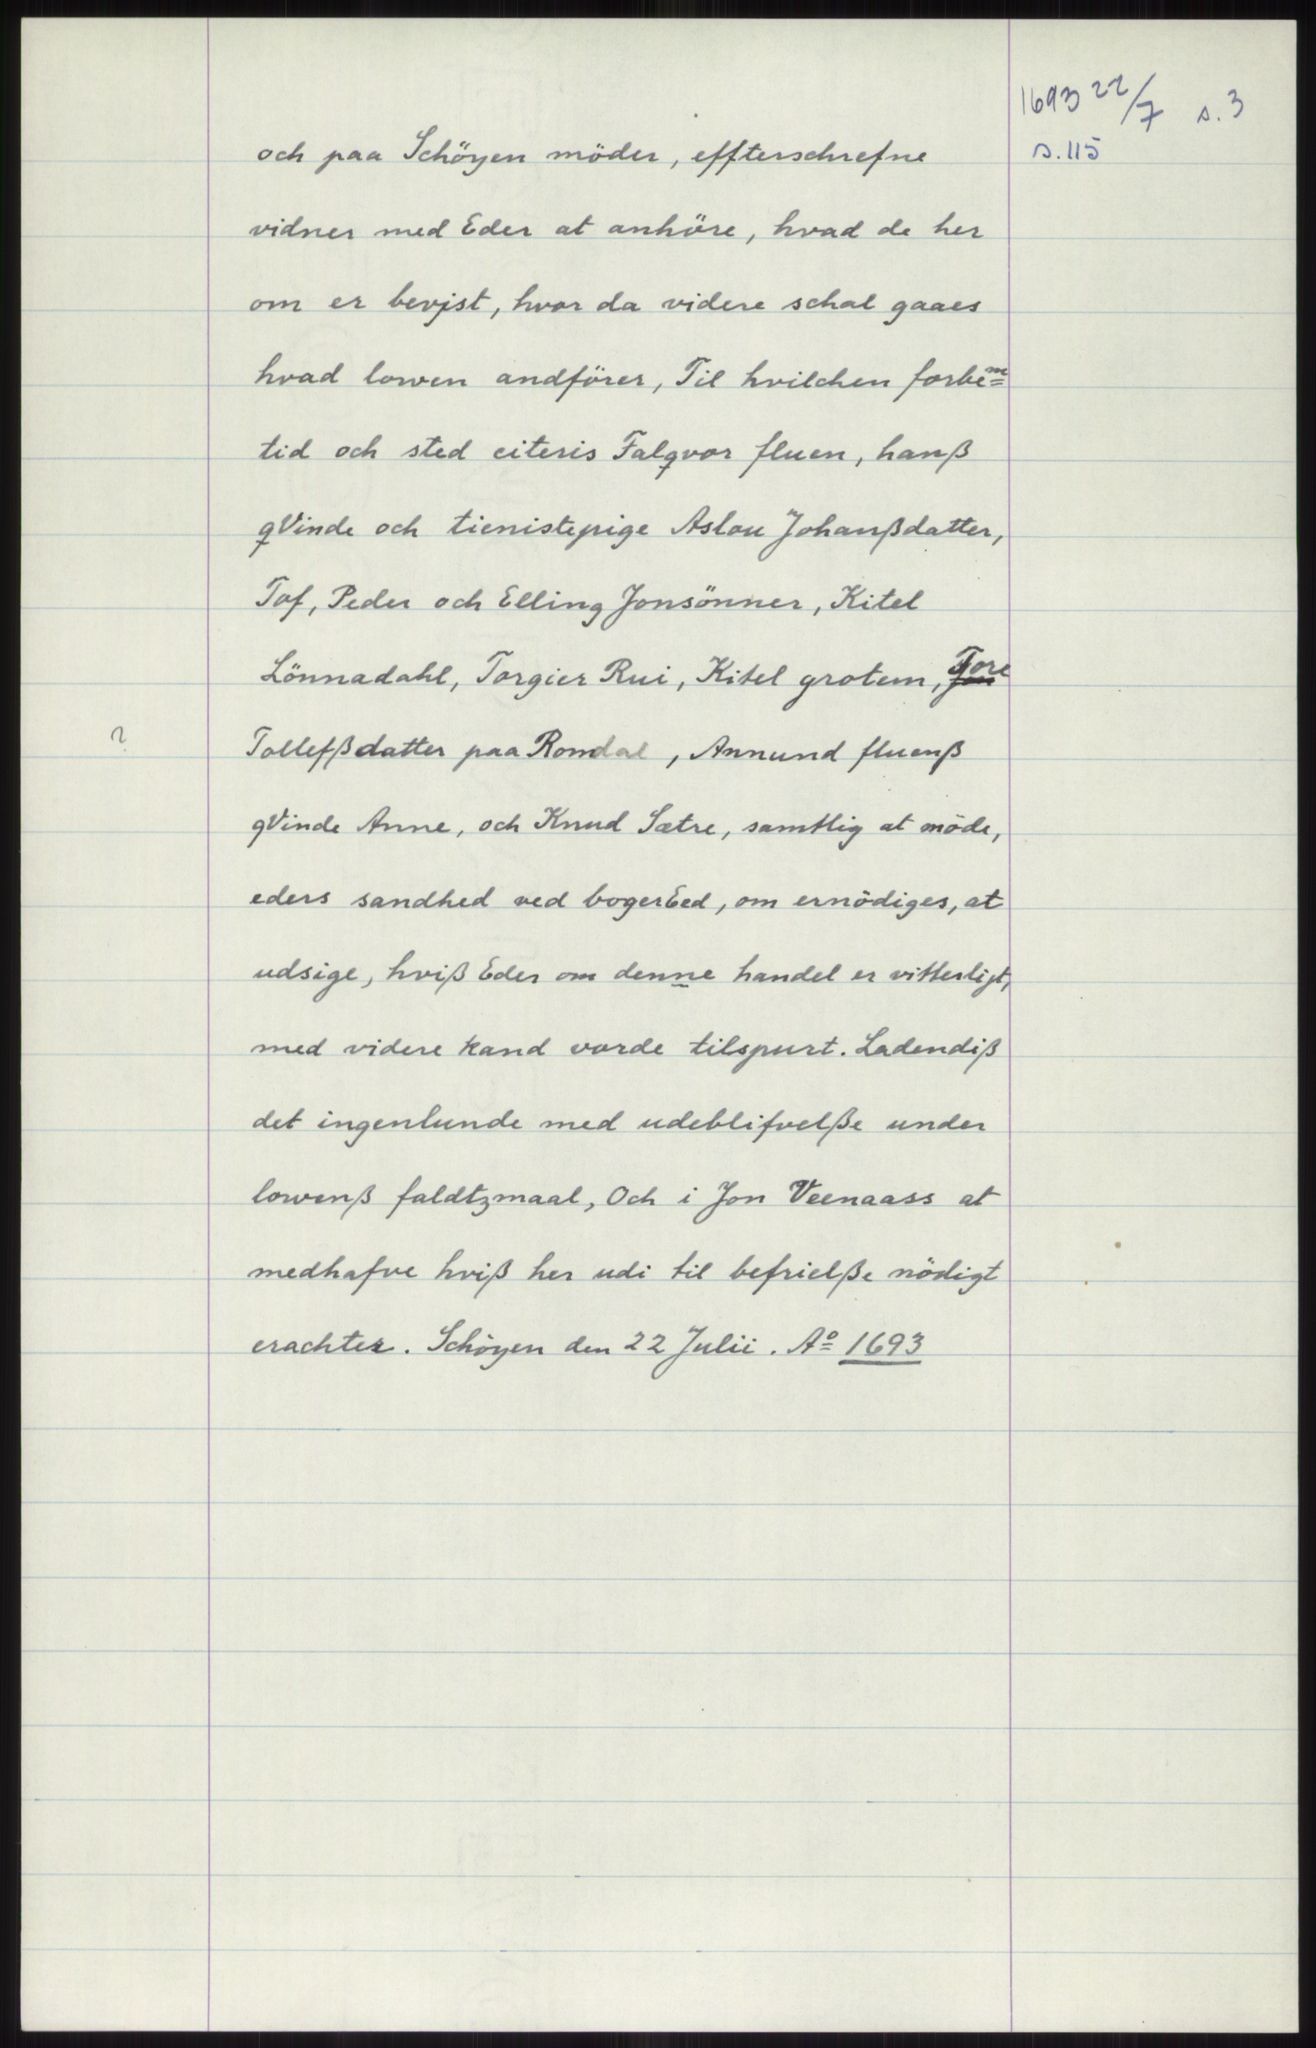 1693 22/7 s. 3
s. 115
och paa Schöyen möder, effterschrefne
vidner med Eder at anhöre, hvad de her
om er bevist, hvor da videre schal gaaes
hvad lowen andförer, Til hvilchen forbem=
tid och sted citeris Falqvor fluen, hanß
qVinde och tienistepige Aslou Johanßdatter,
Tof, Peder och Elling Jonsönner, Kitel
Lönnadahl, Torgier Rui, Kitel grotem, Tore
? Tollefßdatter paa Romdal, Annund fluenß
qVinde Anne, och Knud Sætre, samtlig at möde,
eders sandhed ved bogerEed, om ernödiges, at
udsige, hviß Eder om denne handel er vitterligt,
med videre kand vorde tilspurt. Ladendiß
det ingenlunde med udeblifvelße under
lowenß faldtzmaal, Och i Jon Veenaass at
medhafve hviß her udi til befrielße nödigt
erachter. Schöyen den 22 Julii. Aº 1693